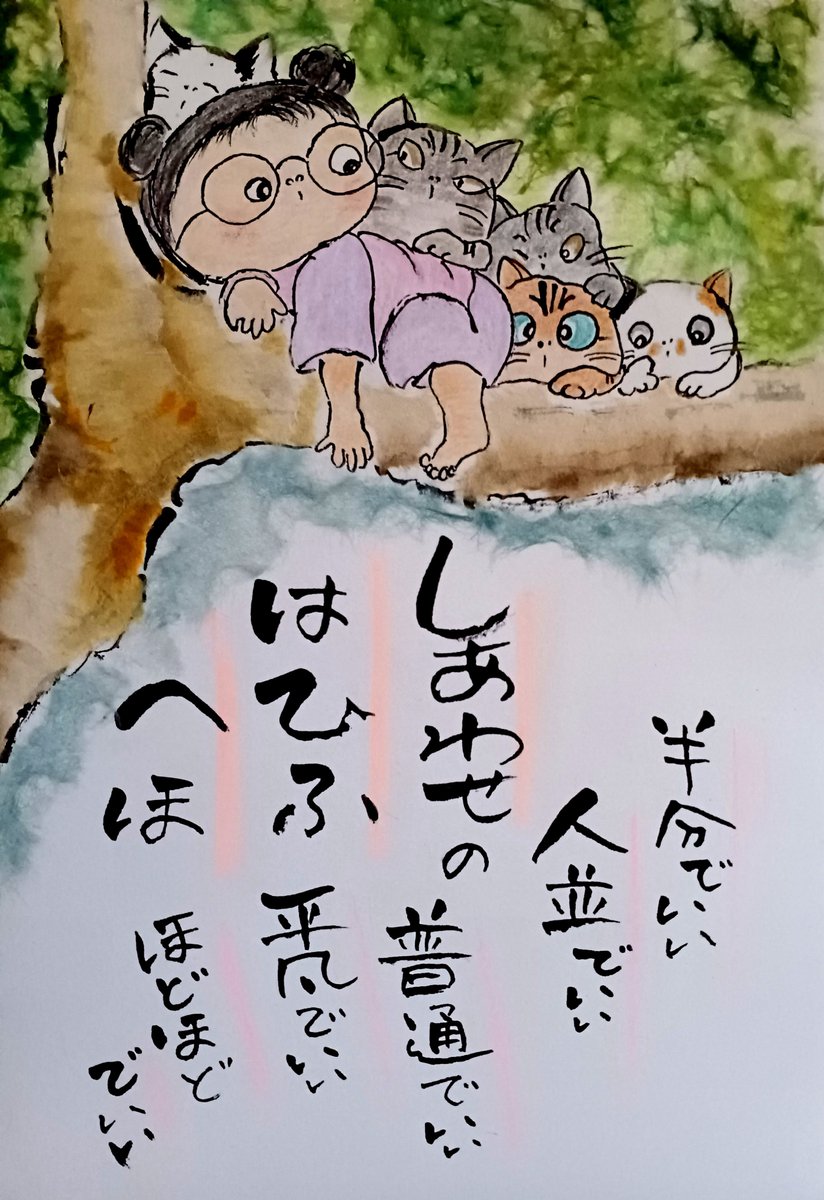 しあわせの
はひふ
へほ
半分でいい
人並でいい
普通でいい
平凡でいい
ほどほど
でいい